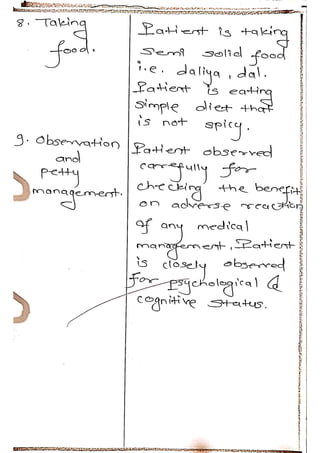 8. Taking
food.
Patient is taking
semi solid food
i.e. daliya, dal.
Patient is eating
simple diet that
is not spicy.
9. Observation
and
petty
management.
Patient observed
carefully for
checking the benefit
on adverse reaction
of any medical
management, Patient
is closely observed
for psychological &
cognitive status.